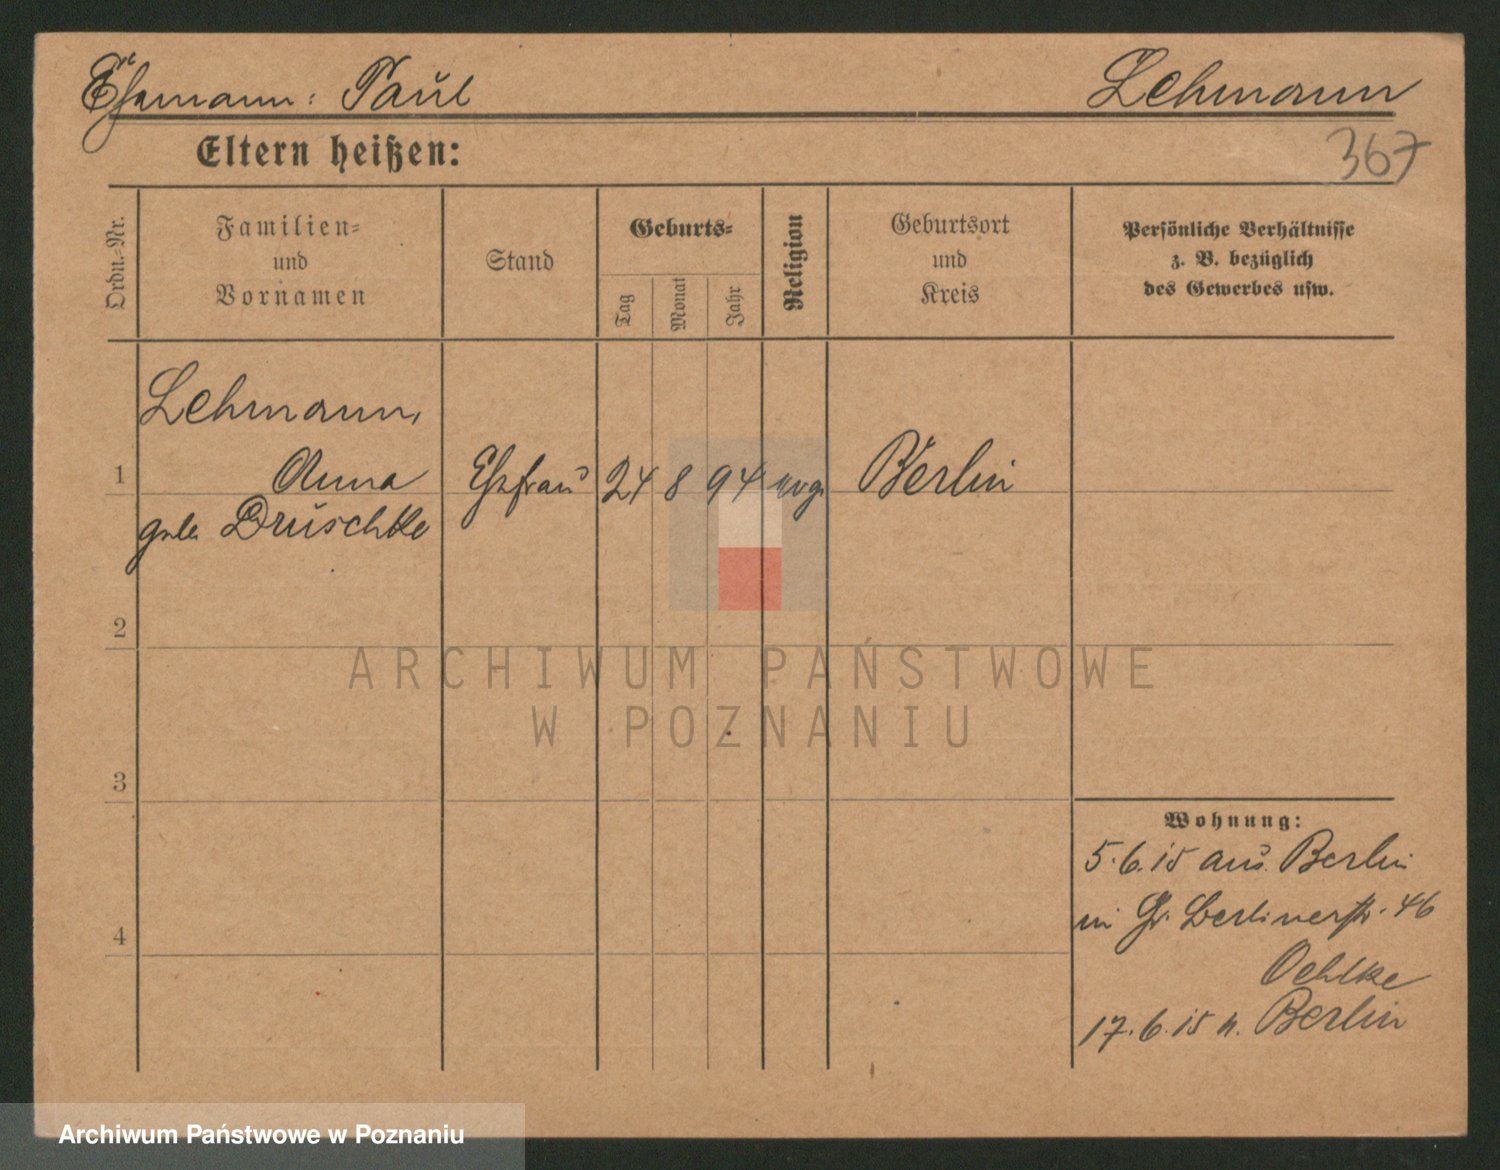 Ehemann: Paul Lehmann
Eltern heißen:
367
Ordn.-Nr.
Familien-
und
Vornamen
Stand
Geburts-
Tag
Monat
Jahr
Religion
Geburtsort
und
Kreis
Persönliche Verhältnisse
z. B. bezüglich
des Gewerbes usw.
Lehmann,
1 Anna Ehefrau 24 8 94 evgl Berlin
geb. Druschke
2
3
4
ARCHIWUM PAŃSTWOWE
W POZNANIU
Wohnung:
5.6.15 aus Berlin
in Gr. Berlinerstr. 46
Oehlke
17.6.15 n. Berlin
Archiwum Państwowe w Poznaniu